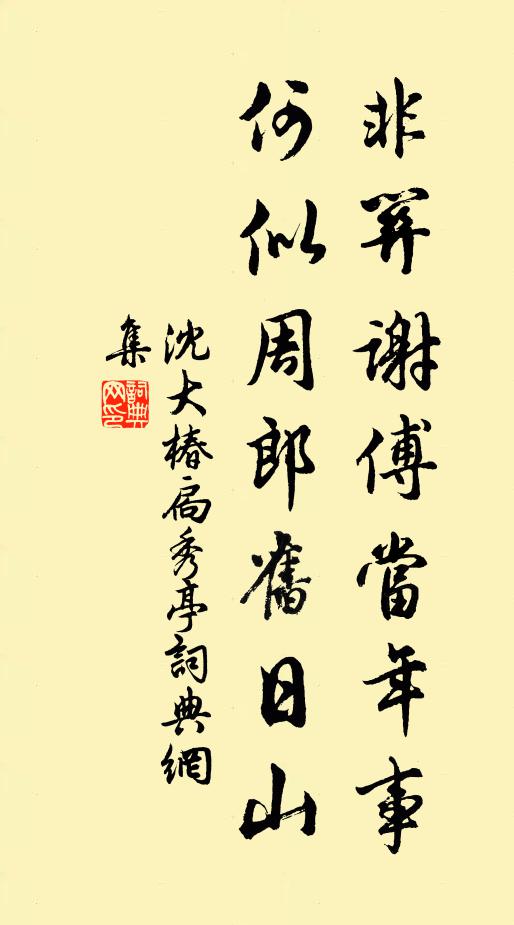 非關謝傅當年事
何似周郎舊日山
沈大椿扁秀亭詞典網
集
詞典
網印